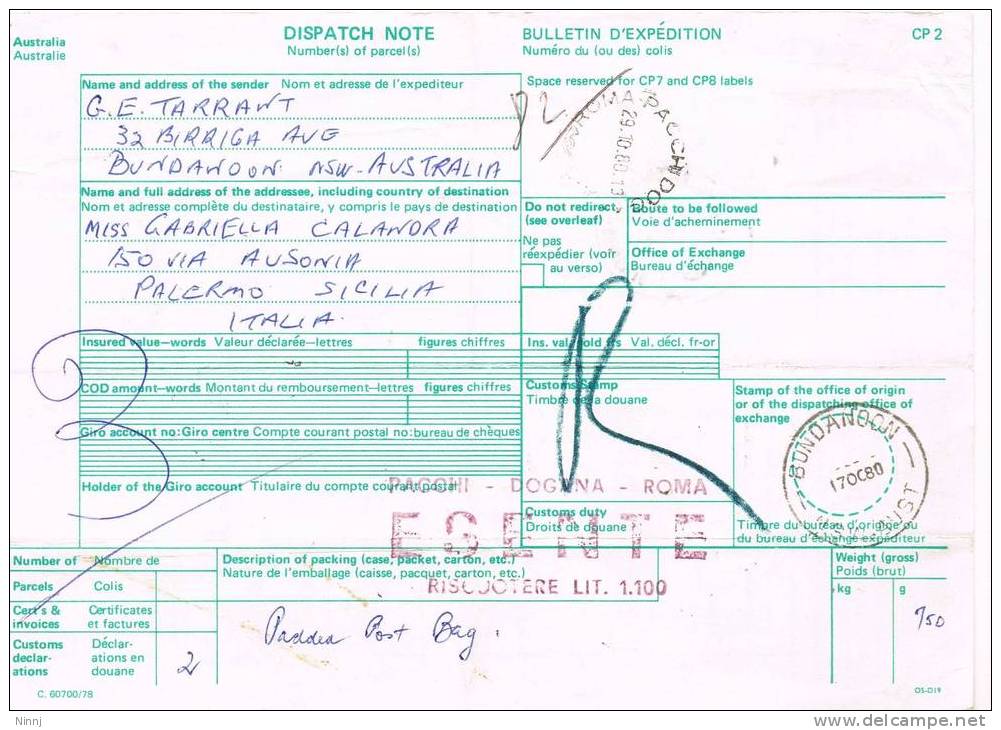 Australia
Australie
DISPATCH NOTE
Number(s) of parcel(s)
BULLETIN D'EXPÉDITION
Numéro du (ou des) colis
CP 2
Name and address of the sender Nom et adresse de l'expediteur
G.E. TARRANT
32 BIRRIGA AVE
BUNDANOON NSW-AUSTRALIA
Space reserved for CP7 and CP8 labels
82
ROMA PACCHI DOG
29.10.80.13
Name and full address of the addressee, including country of destination
Nom et adresse complète du destinataire, y compris le pays de destination
MISS GABRIELLA CALANDRA
150 VIA AUSONIA
PALERMO SICILIA
ITALIA.
Do not redirect,
(see overleaf)
Ne pas
réexpédier (voir
au verso)
Route to be followed
Voie d'acheminement
Office of Exchange
Bureau d'échange
Insured value—words Valeur déclarée—lettres figures chiffres
Ins. val. gold frs Val. décl. fr-or
COD amount—words Montant du remboursement—lettres figures chiffres
Customs Stamp
Timbre de la douane
Stamp of the office of origin
or of the dispatching office of
exchange
Giro account no: Giro centre Compte courant postal no: bureau de chèques
BUNDANOON
17OC80
N.S.W. AUST
Holder of the Giro account Titulaire du compte courant postal
PACCHI - DOGANA - ROMA
ESENTE
RISCUOTERE LIT. 1.100
Customs duty
Droits de douane
Timbre du bureau d'origine ou
du bureau d'échange expéditeur
Number of Nombre de
Parcels Colis
Cert's &
invoices
Certificates
et factures
Customs
declar-
ations
Déclar-
ations en
douane
2
Description of packing (case, packet, carton, etc.)
Nature de l'emballage (caisse, pacquet, carton, etc.)
Padded Post Bag.
Weight (gross)
Poids (brut)
kg g
950
C. 60700/78
OS-D19
Ninnj
delcampe.net